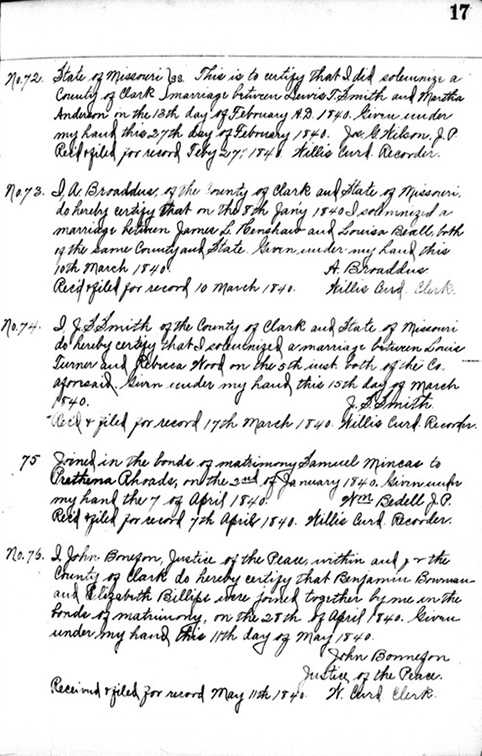 17
No. 72. State of Missouri } SS. This is to certify that I did solemnize a
County of Clark } marriage between Lewis T. Smith and Martha
Anderson on the 13th day of February A.D. 1840. Given under
my hand this 27th day of February 1840. Jos. G. Wilson, J.P.
Rec'd & filed for record Feby 27, 1840. Willis Curd. Recorder.
No. 73. I, A. Broaddus, of the County of Clark and State of Missouri,
do hereby certify that on the 8th Jan'y 1840 I solemnized a
marriage between James L. Henshaw and Louisa Beall both
of the same County and State. Given under my hand this
10th March 1840. A. Broaddus.
Rec'd & filed for record 10 March 1840. Willis Curd. Clerk.
No. 74. I, J. S. Smith of the County of Clark and State of Missouri
do hereby certify that I solemnized a marriage between Louis
Turner and Rebecca Wood on the 5th inst. both of the Co.
aforesaid. Given under my hand this 15th day of March
1840. J. S. Smith
Rec'd & filed for record 17th March 1840. Willis Curd. Recorder.
75 Joined in the bonds of matrimony Samuel Mincas to
Prethena Rhoads, on the 2nd of January 1840. Given under
my hand the 7 of April 1840. Wm Bedell J.P.
Rec'd & filed for record 7th April 1840. Willis Curd. Recorder.
No. 76. I, John Boneson, Justice of the Peace, within and for the
County of Clark do hereby certify that Benjamin Bowman
and Elizabeth Billips were joined together by me in the
bonds of matrimony, on the 28th of April 1840. Given
under my hand this 11th day of May 1840.
John Bonneson
Justice of the Peace.
Received & filed for record May 11th 1840 W. Curd Clerk.